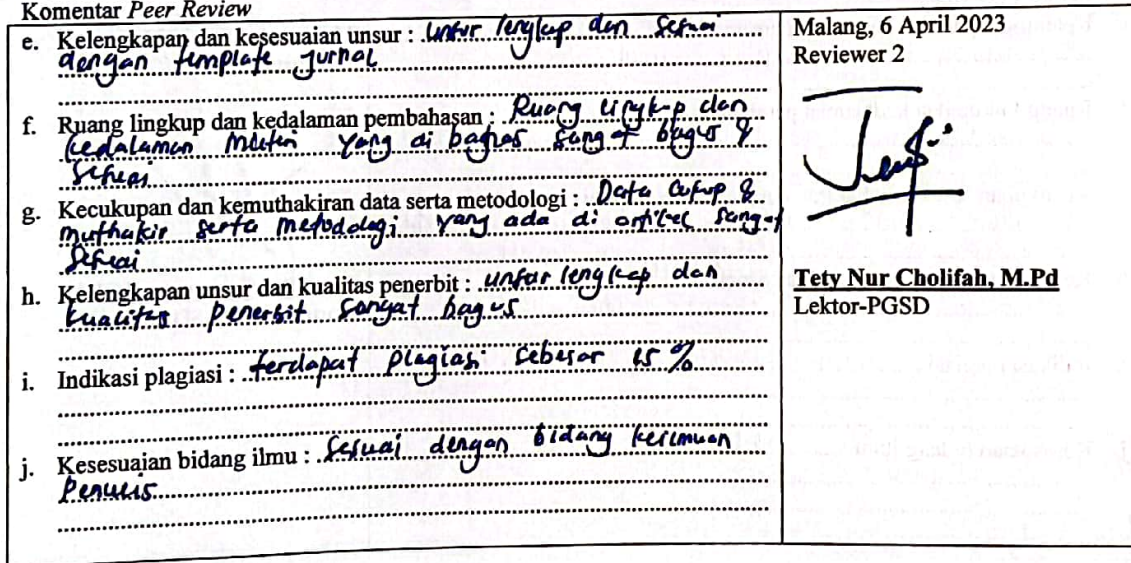 Komentar Peer Review
e. Kelengkapan dan kesesuaian unsur : unsur lengkap dan sesuai
dengan template jurnal
f. Ruang lingkup dan kedalaman pembahasan : Ruang lingkup dan
kedalaman materi yang di bahas sangat bagus &
sesuai
g. Kecukupan dan kemuthakiran data serta metodologi : Data cukup &
muthakir serta metodologi yang ada di artikel sangat
sesuai
h. Kelengkapan unsur dan kualitas penerbit : unsur lengkap dan
kualitas penerbit sangat bagus
i. Indikasi plagiasi : terdapat plagiasi sebesar %
j. Kesesuaian bidang ilmu : sesuai dengan bidang keilmuan
penulis
Malang, 6 April 2023
Reviewer 2
Tety Nur Cholifah, M.Pd
Lektor-PGSD